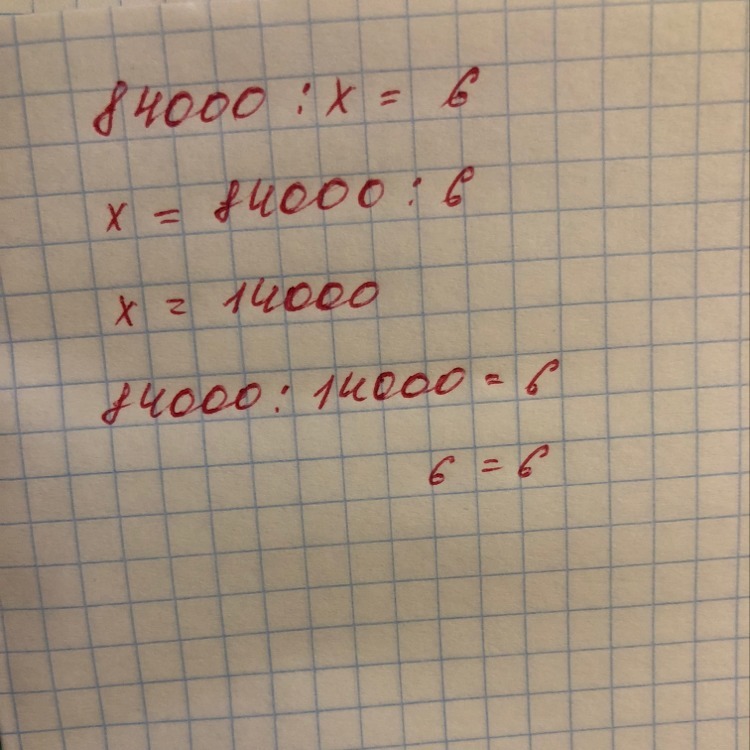 84000 : x = 6
x = 84000 : 6
x = 14000
84000 : 14000 = 6
6 = 6